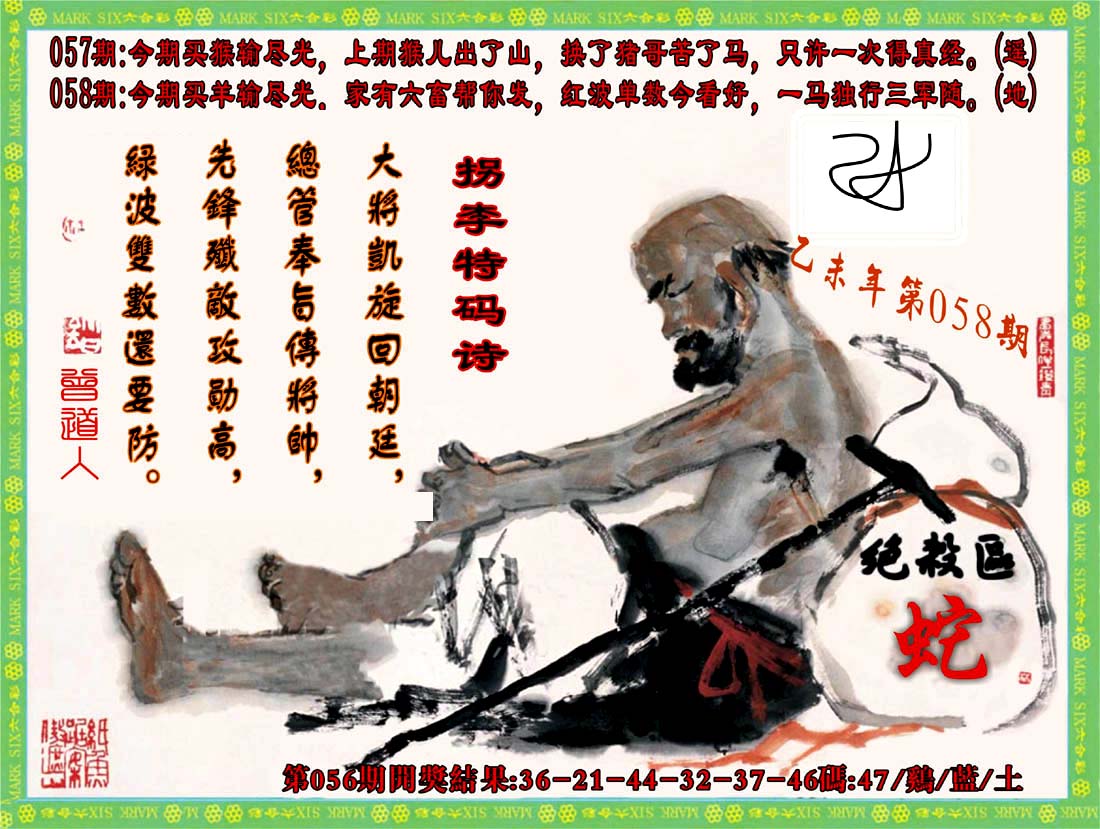 MARK SIX六合彩
057期:今期买猴输尽光，上期猴人出了山，换了猪哥苦了马，只许一次得真经。(遥)
058期:今期买羊输尽光．家有六富帮你发，红波单数今看好，一马独行三军随。(地)
拐李特码诗
大將凱旋回朝廷，
總管奉旨傳將帥，
先鋒殲敵攻勛高，
緑波雙數還要防。
曾道人
乙未年第058期
绝殺區
蛇
第056期開獎結果:36-21-44-32-37-46碼:47/鷄/藍/土